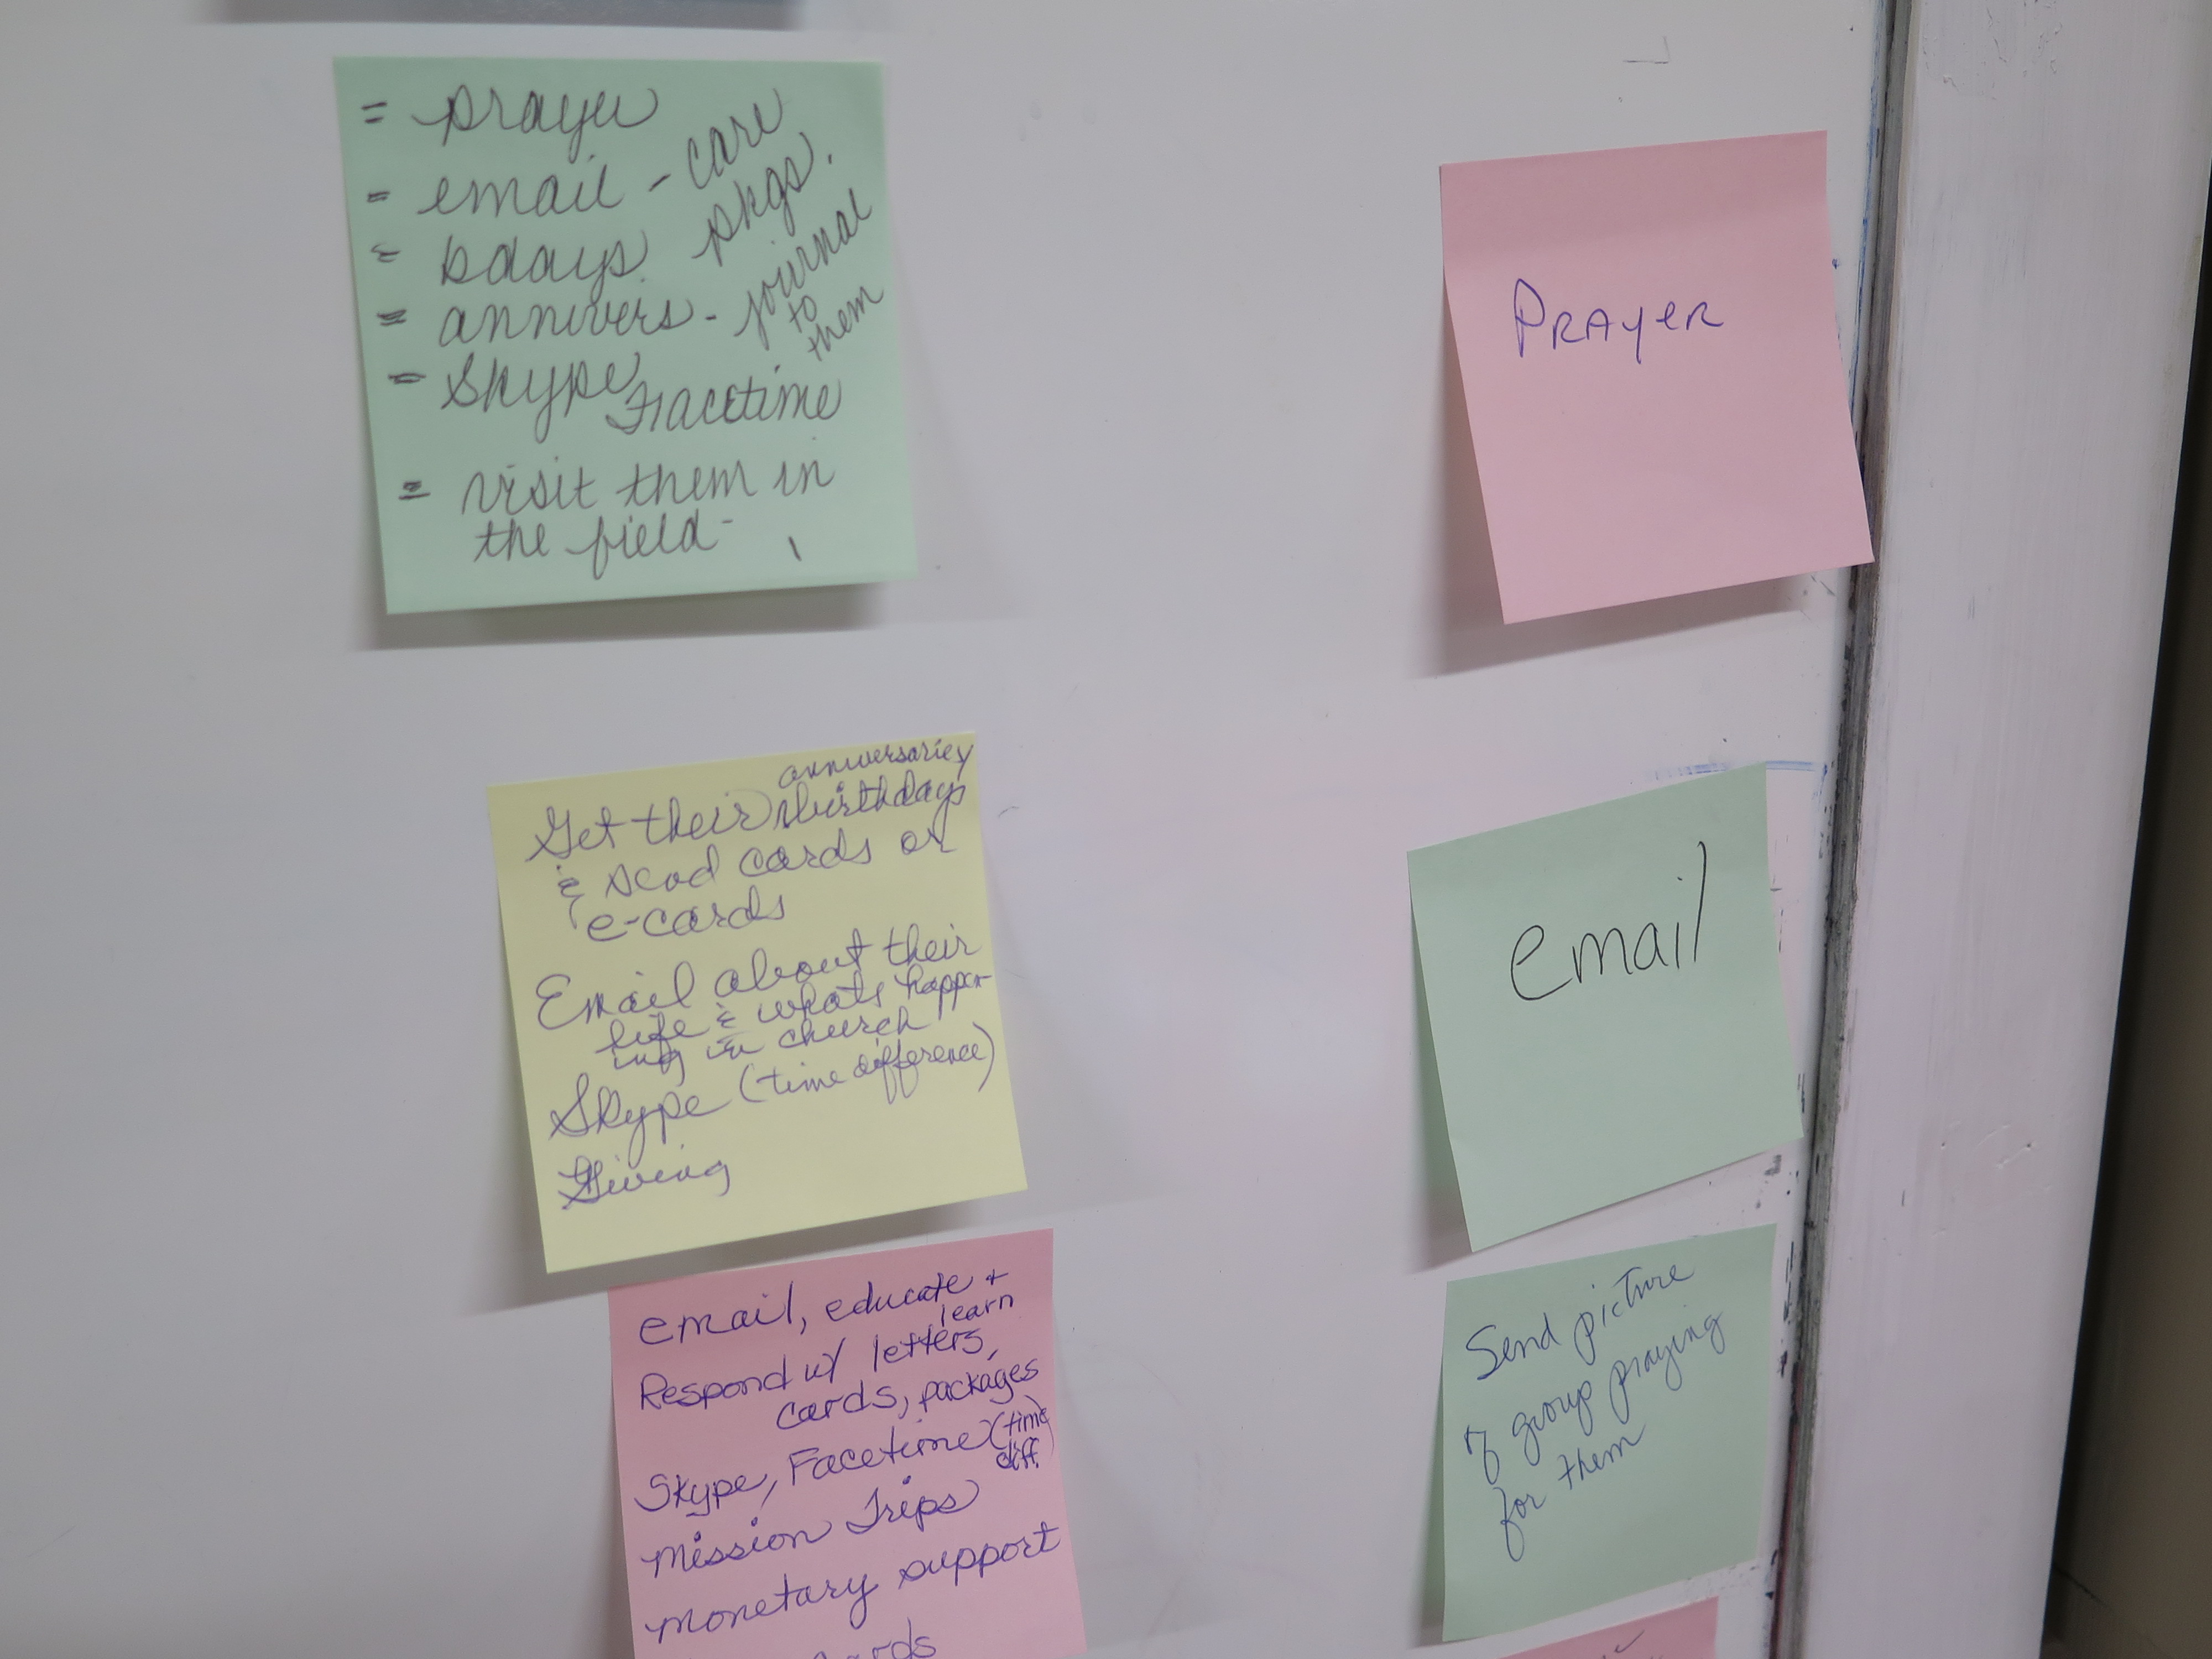 = prayer
= email - care
pkgs.
= bdays
= annivers - journal
to
them
= Skype
Facetime
= visit them in
the field -
PRAYER
anniversaries
Get their birthdays
& send cards or
e-cards
Email about their
life & whats happen-
ing in church
Skype (time difference)
Giving
email
email, educate +
learn
Respond w/ letters,
cards, packages
Skype, Facetime (time
diff.)
Mission Trips
monetary support
Send picture
of group praying
for them